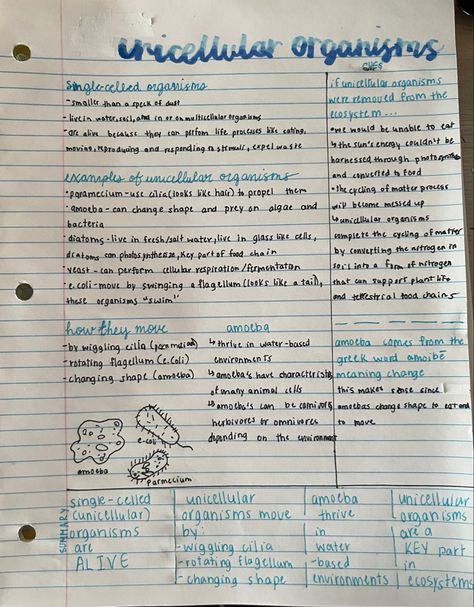 unicellular organisms
single-celled organisms
-smaller than a speck of dust
-live in water, soil, and in or on multicellular organisms
-are alive because they can perform life processes like eating,
moving, reproducing and responding to stimuli, expel waste
examples of unicellular organisms
•paramecium-use cilia (looks like hair) to propel them
•amoeba-can change shape and prey on algae and
bacteria
•diatoms-live in fresh/salt water, live in glass like cells,
diatoms can photosynthesize, key part of food chain
•yeast-can perform cellular respiration/fermentation
•e.coli-move by swinging a flagellum (looks like a tail),
these organisms "swim"
how they move
-by wiggling cilia
-rotating flagellum (e.coli)
-changing shape (amoeba)
amoeba
e.coli
paramecium
amoeba
↳thrive in water-based
environments
↳amoeba's have characteristics
of many animal cells
↳amoeba's can be
herbivores or omnivores
depending on the environment
CUES
if unicellular organisms
were removed from the
ecosystem...
•we would be unable to eat
↳the sun's energy couldn't be
harnessed through
and converted to food
•the cycling of matter process
will become messed up
↳unicellular organisms
complete the cycling of matter
by converting the nitrogen in
soil into a form of nitrogen
that can support plant life
and terrestrial food chains
amoeba comes from the
greek word amoibē
meaning change
this makes sense since
amoebas change shape to eat and
to move
SUMMARY
single-celled
(unicellular)
organisms
are
ALIVE
unicellular
organisms move
by:
-wiggling cilia
-rotating flagellum
-changing shape
amoeba
thrive
in
water
-based
environments
unicellular
organisms
are a
KEY part
in
ecosystems